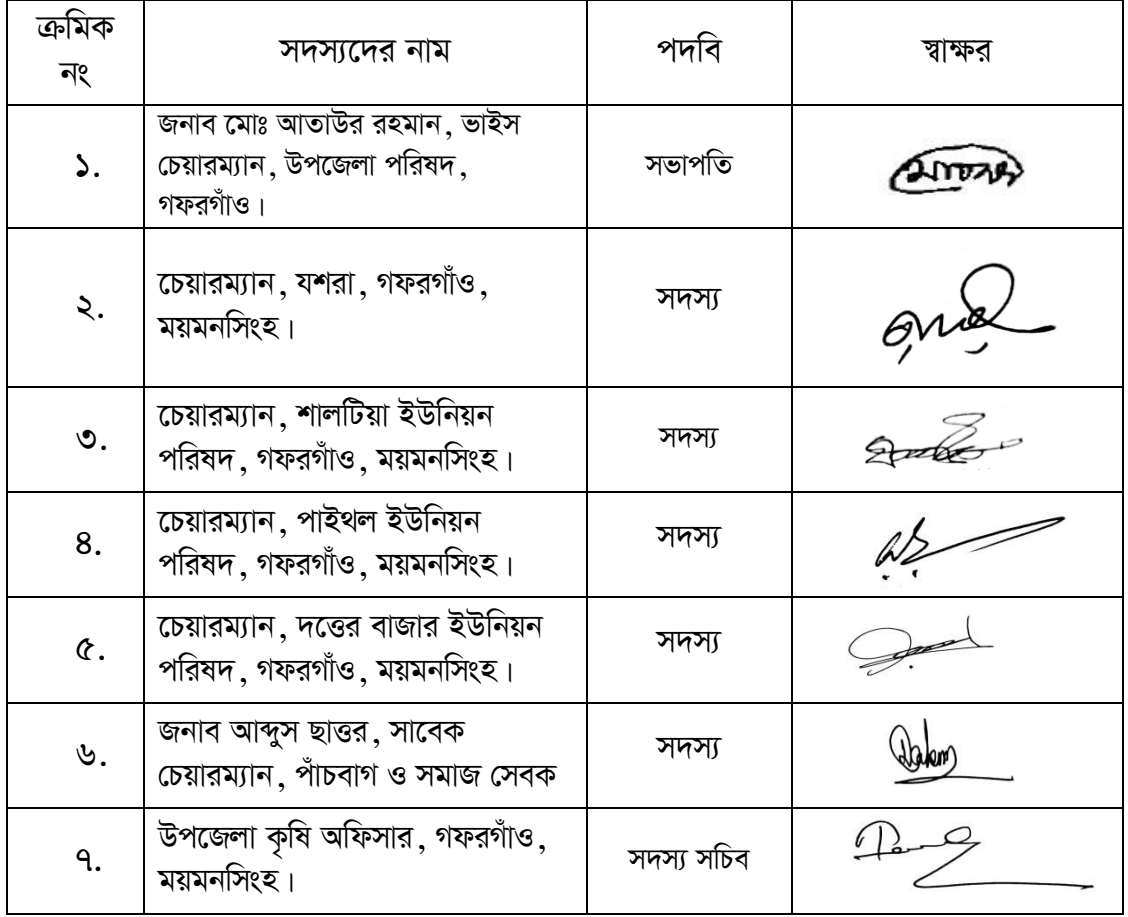 ক্রমিক নং সদস্যদের নাম পদবি স্বাক্ষর
১. জনাব মোঃ আতাউর রহমান, ভাইস
চেয়ারম্যান, উপজেলা পরিষদ,
গফরগাঁও। সভাপতি
২. চেয়ারম্যান, যশরা, গফরগাঁও,
ময়মনসিংহ। সদস্য
৩. চেয়ারম্যান, শালটিয়া ইউনিয়ন
পরিষদ, গফরগাঁও, ময়মনসিংহ। সদস্য
৪. চেয়ারম্যান, পাইথল ইউনিয়ন
পরিষদ, গফরগাঁও, ময়মনসিংহ। সদস্য
৫. চেয়ারম্যান, দত্তের বাজার ইউনিয়ন
পরিষদ, গফরগাঁও, ময়মনসিংহ। সদস্য
৬. জনাব আব্দুস ছাত্তর, সাবেক
চেয়ারম্যান, পাঁচবাগ ও সমাজ সেবক সদস্য
৭. উপজেলা কৃষি অফিসার, গফরগাঁও,
ময়মনসিংহ। সদস্য সচিব